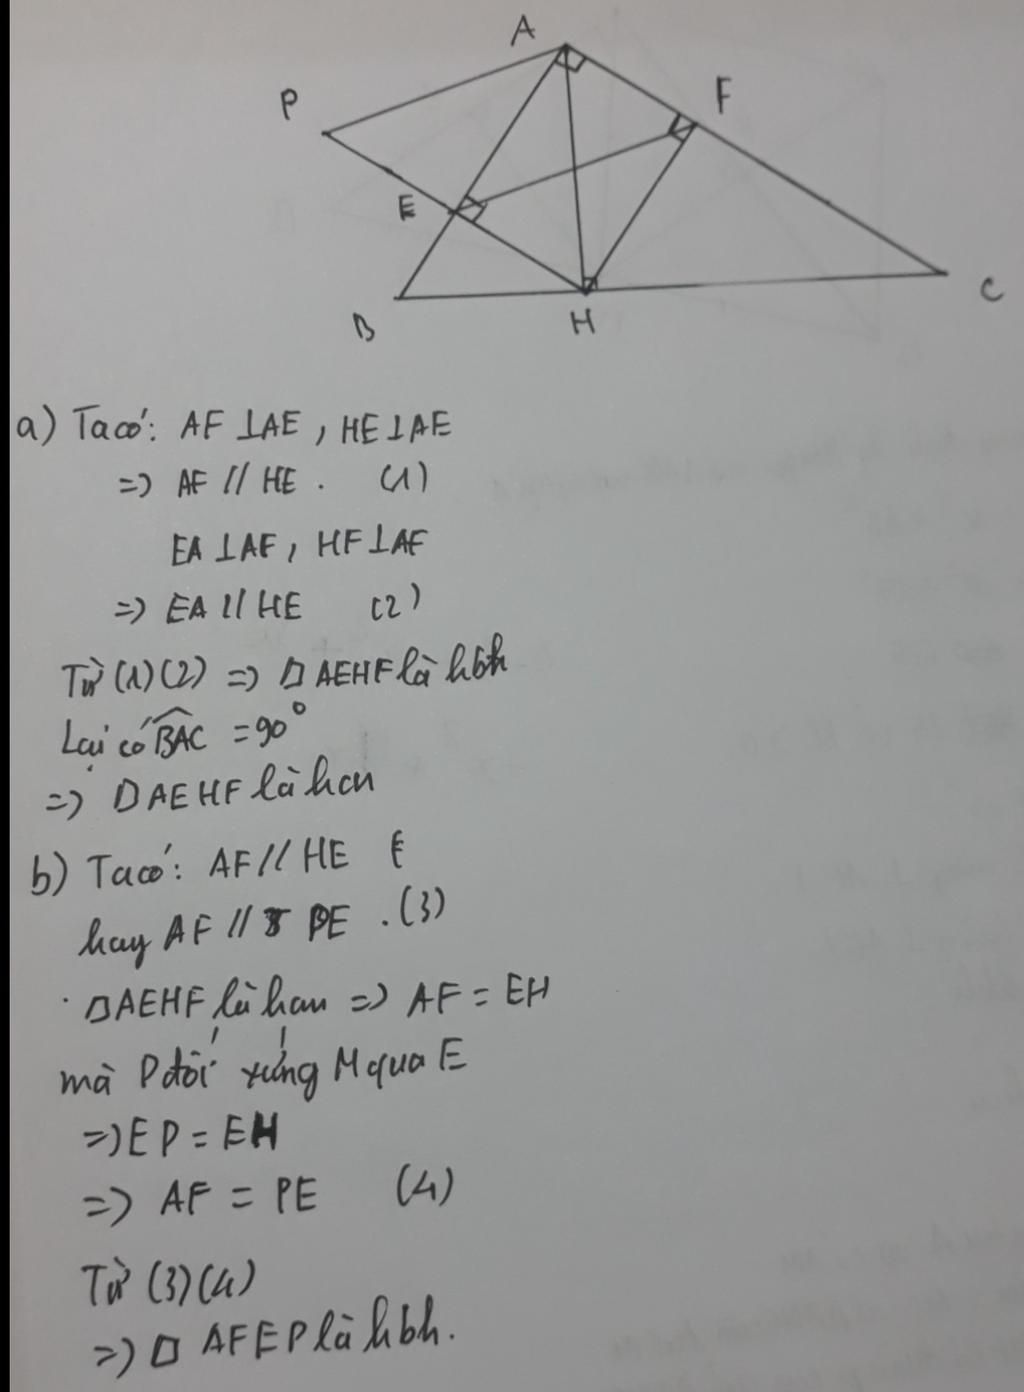 A
P
F
E
B
H
C
a) Ta có: AF ⊥ AE, HE ⊥ AE
=> AF // HE. (1)
EA ⊥ AF, HF ⊥ AF
=> EA // HE (2)
Từ (1)(2) => □ AEHF là hbh
Lại có BAC = 90°
=> □ AEHF là hcn
b) Ta có: AF // HE
hay AF // PE. (3)
□ AEHF là hcn => AF = EH
mà P đối xứng M qua E
=> EP = EH
=> AF = PE (4)
Từ (3)(4)
=> □ AFEP là hbh.